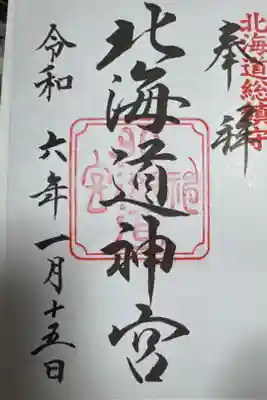 北海道総鎮守
奉拝
北海道神宮
令和六年一月十五日